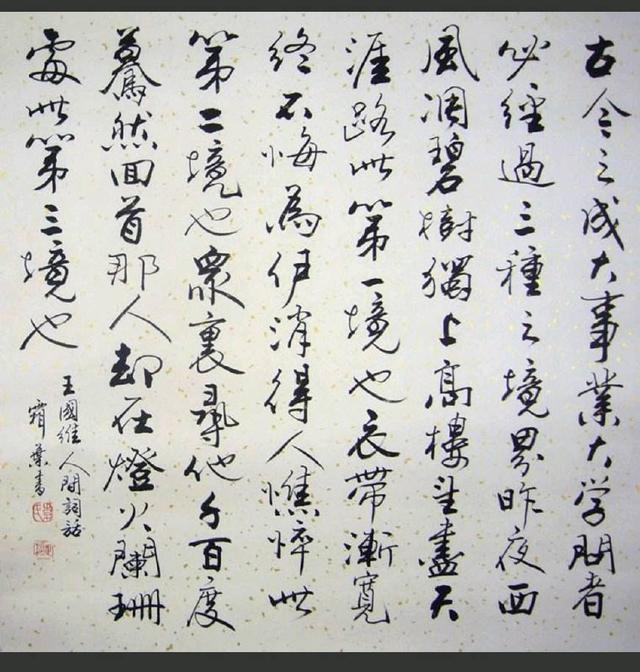 古今之成大事業大学問者
必經過三種之境界昨夜西
風凋碧樹獨上高樓望盡天
涯路此第一境也衣帶漸寬
終不悔為伊消得人憔悴此
第二境也衆裏尋他千百度
驀然回首那人却在燈火闌珊
處此第三境也
王國維人間詞話
葉書